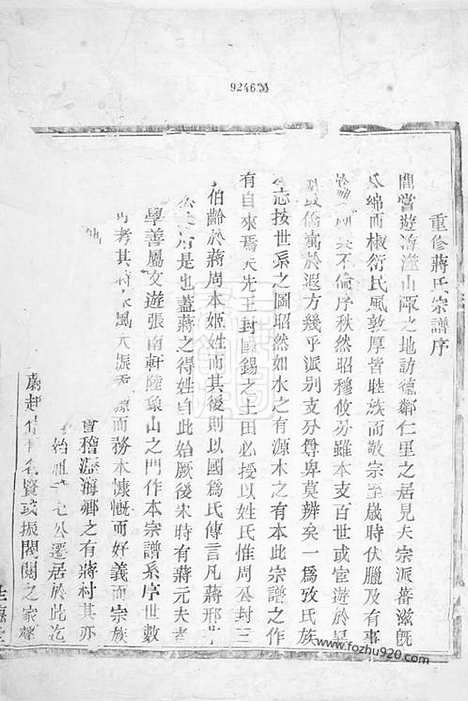 9246
重修蔣氏宗譜序
間嘗遊海澨山陬之地訪德鄰仁里之居見夫宗派蕃滋旣
瓜綿而椒衍民風敦厚皆睦族而敬宗至歲時伏臘及有事
不倫序秩然昭穆攸分雖本支百世或宦遊於
僑寓於遐方幾乎派別支分尊卑莫辨矣一爲攷氏族
志按世系之圖昭然如水之有源木之有本此宗譜之作
有自來焉夫先王封國錫之土田必授以姓氏惟周公封三
伯齡於蔣周本姬姓而其後則以國爲氏傳言凡蔣邢
是也蓋蔣之得姓自此始厥後宋時有蔣元夫
學善屬文遊張南軒陸象山之門作本宗譜系序世數
可考其風大振 源而務本慷慨而好義而宗族
會稽濵海鄉之有蔣村其亦
始祖 公遷居於此迄
蔚起 賢或振閥閱之家聲
www.fozhu920.com